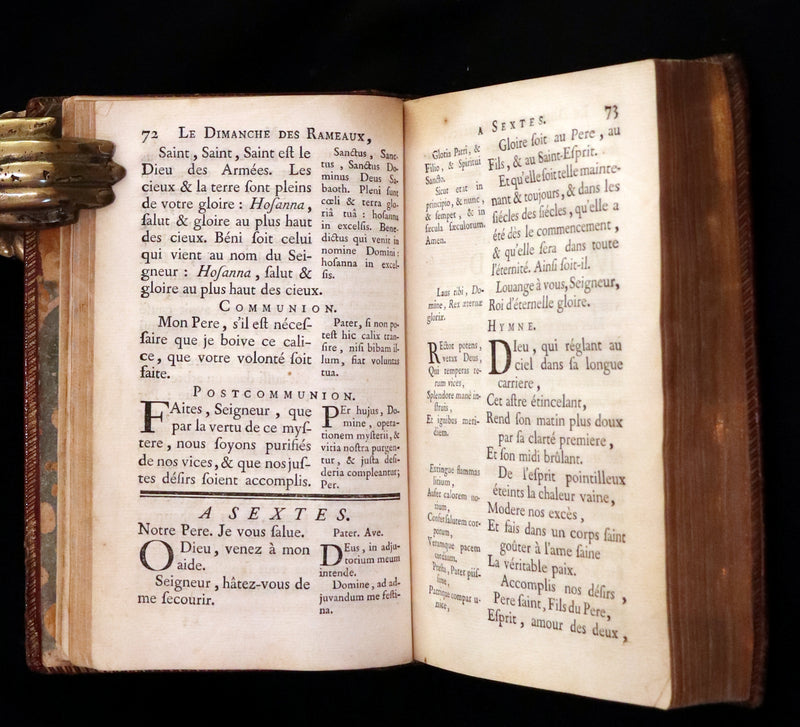 72 LE DIMANCHE DES RAMEAUX,
Saint, Saint, Saint eſt le
Dieu des Armées. Les
cieux & la terre ſont pleins
de votre gloire : Hoſanna,
ſalut & gloire au plus haut
des cieux. Béni ſoit celui
qui vient au nom du Sei-
gneur : Hoſanna, ſalut &
gloire au plus haut des cieux.
Sanctus, Sanc-
tus, Sanctus Do-
minus Deus Sa-
baoth. Pleni ſunt
cœli & terra glo-
riâ tuâ : hoſanna
in excelſis. Bene-
dictus qui venit in
nomine Domini :
hoſanna in excel-
ſis.
COMMUNION.
Mon Pere, s'il eſt néceſ-
ſaire que je boive ce cali-
ce, que votre volonté ſoit
faite.
Pater, ſi non po-
teſt hic calix tran-
ſire, niſi bibam il-
lum, fiat voluntas
tua.
POSTCOMMUNION.
FAites, Seigneur, que
par la vertu de ce myſ-
tere, nous ſoyons purifiés
de nos vices, & que nos juſ-
tes déſirs ſoient accomplis.
PEr hujus, Do-
mine, opera-
tionem myſterii, &
vitia noſtra purgen-
tur, & juſta deſi-
deria compleantur;
Per.
A SEXTES.
Notre Pere. Je vous ſalue.
O Dieu, venez à mon
aide.
Seigneur, hâtez-vous de
me ſecourir.
Pater. Ave.
DEus, in adju-
torium meum
intende.
Domine, ad ad-
juvandum me feſti-
na.
A SEXTES. 73
Gloria Patri, &
Filio, & Spiritui
Sancto.
Sicut erat in
principio, & nunc,
& ſemper, & in
ſæcula ſæculorum.
Amen.
Laus tibi, Do-
mine, Rex æternæ
gloriæ.
Gloire ſoit au Pere, au
Fils, & au Saint-Eſprit.
Et qu'elle ſoit telle mainte-
nant & toujours, & dans les
ſiécles des ſiécles, qu'elle a
été dès le commencement,
& qu'elle ſera dans toute
l'éternité. Ainſi ſoit-il.
Louange à vous, Seigneur,
Roi d'éternelle gloire.
HYMNE.
REctor potens,
verax Deus,
Qui temperas re-
rum vices,
Splendore manè in-
ſtruis,
Et ignibus meri-
diem.
Extingue flammas
litium,
Aufer calorem no-
xium,
Confer ſalutem cor-
porum,
Veramque pacem
cordium.
Præſta, Pater piiſ-
ſime,
Patrique compar u-
nice,
DIeu, qui réglant au
ciel dans ſa longue
carriere,
Cet aſtre étincelant,
Rend ſon matin plus doux
par ſa clarté premiere,
Et ſon midi brûlant.
De l'eſprit pointilleux
éteints la chaleur vaine,
Modere nos excès,
Et fais dans un corps ſaint
goûter à l'ame ſaine
La véritable paix.
Accomplis nos déſirs,
Pere ſaint, Fils du Pere,
Eſprit, amour des deux,